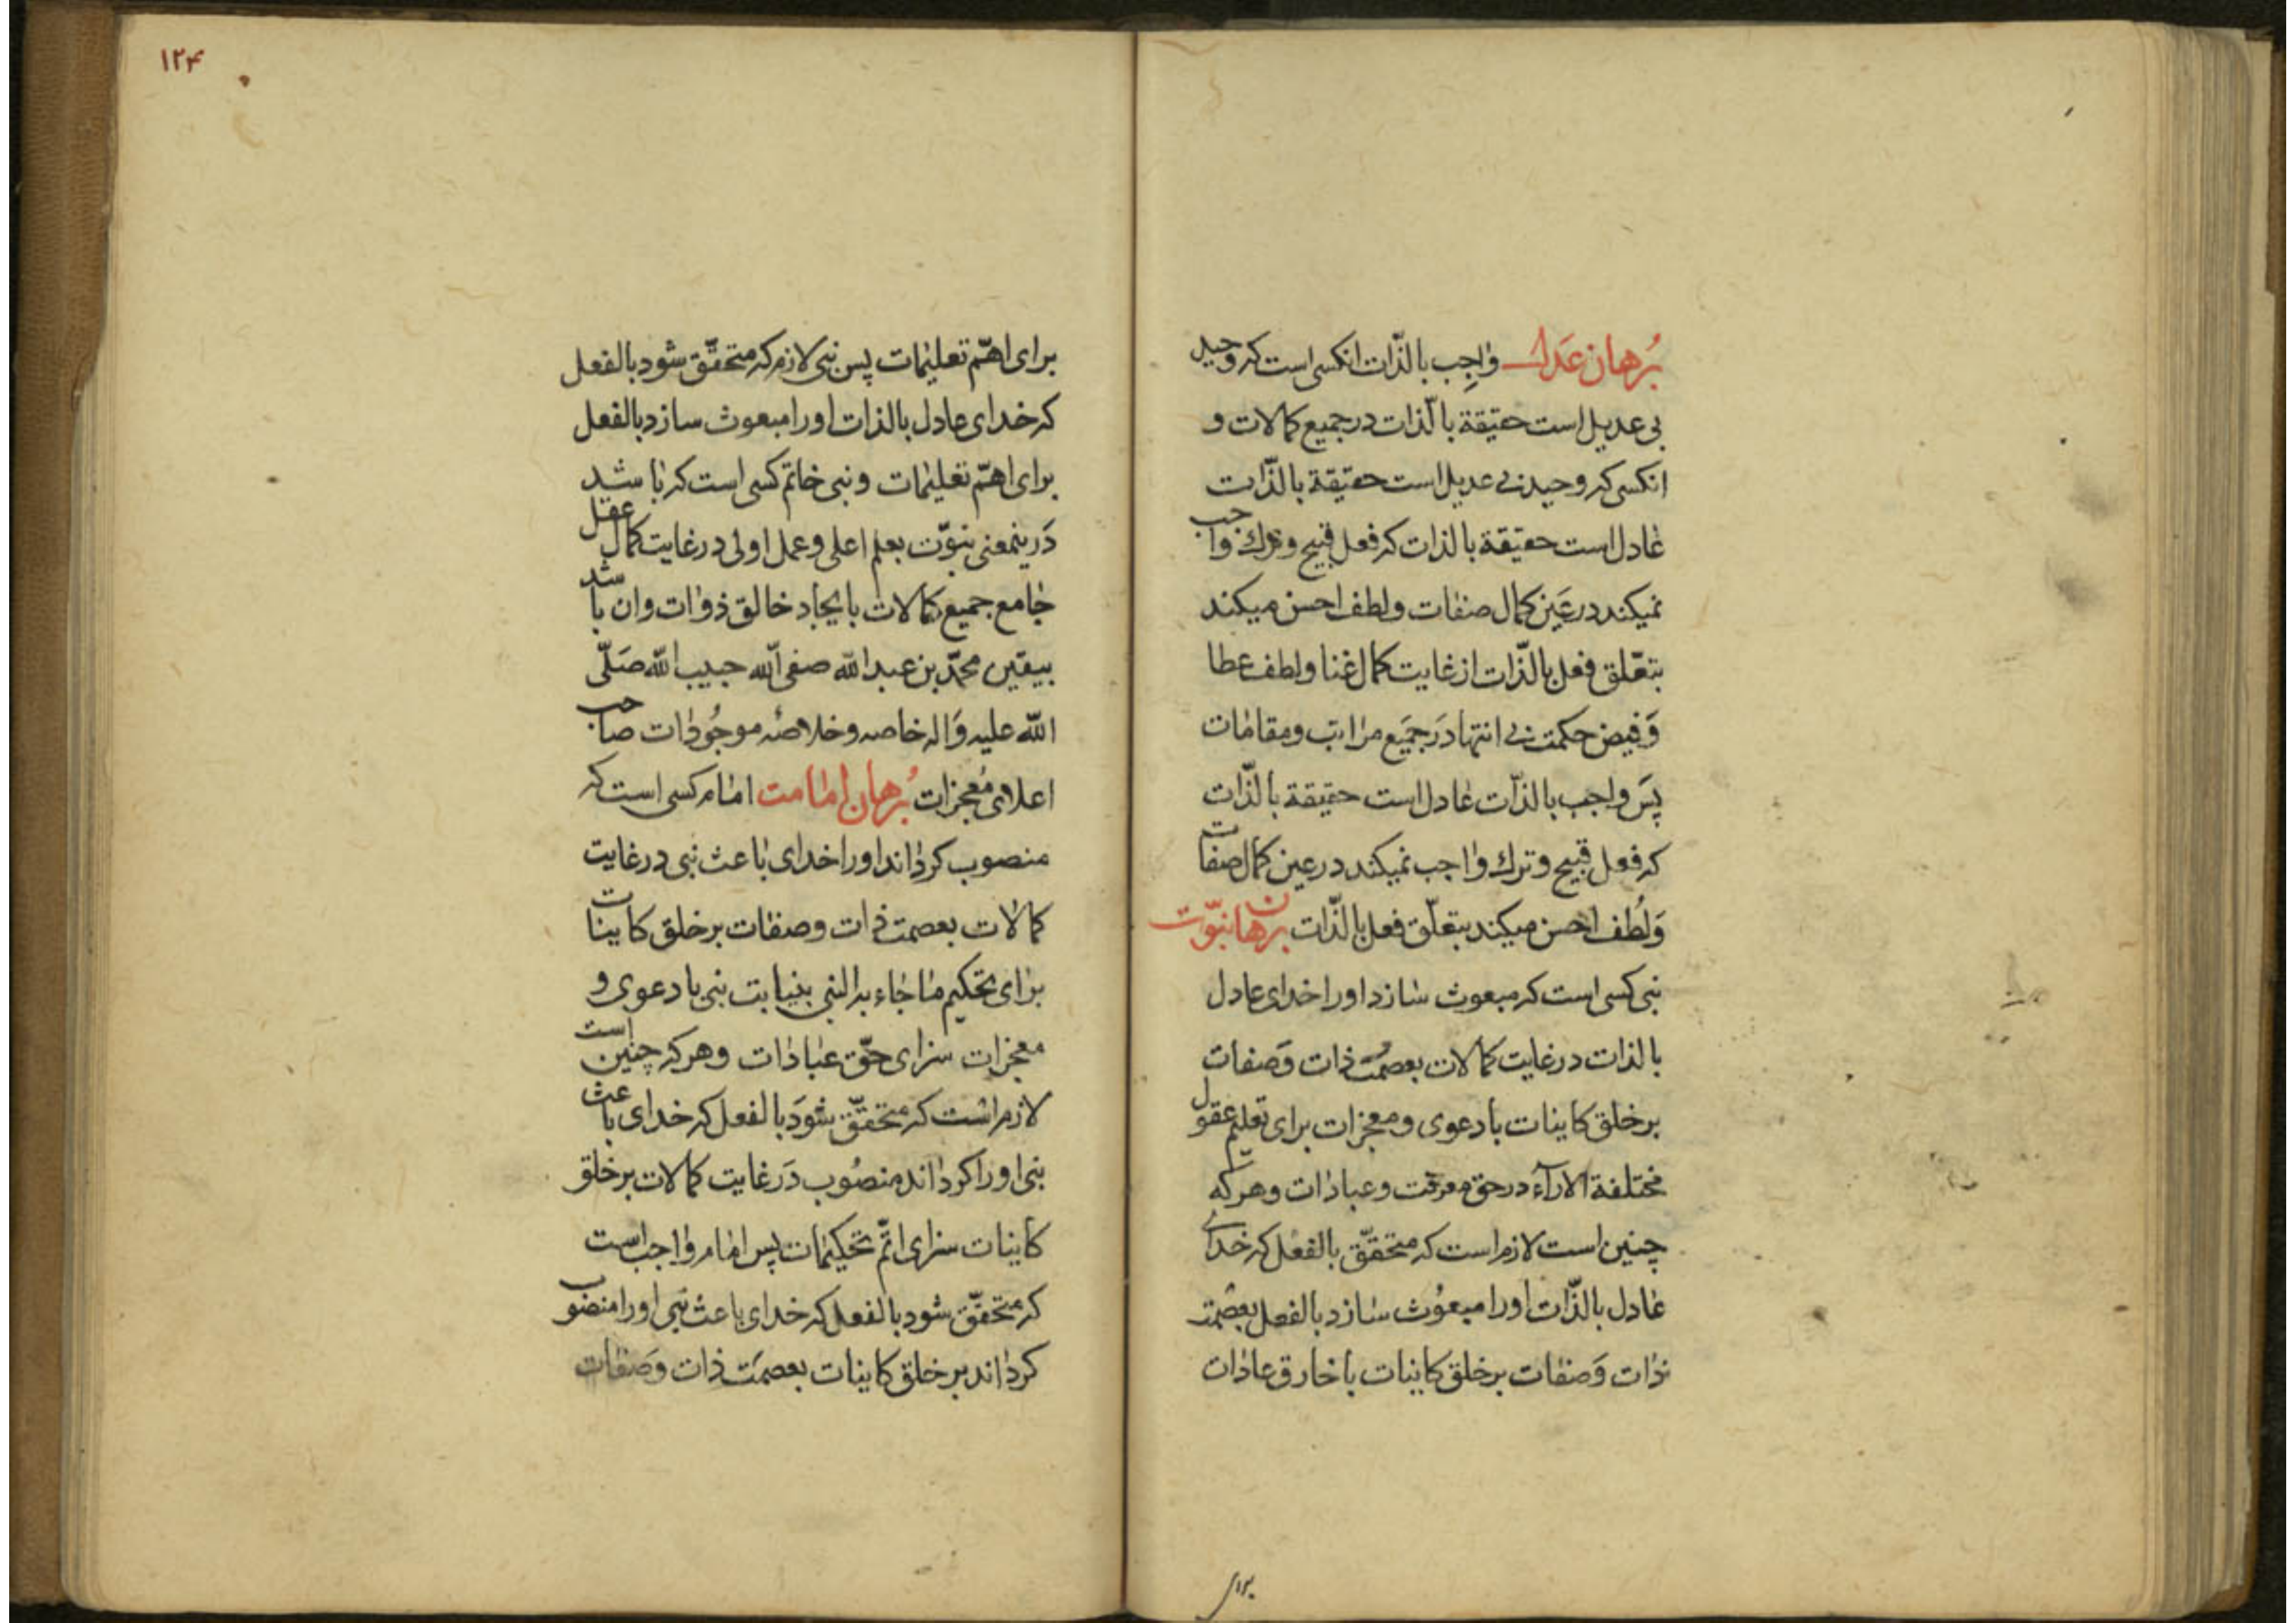 بُرهان عَدل واجِب بالذّات انکسی است که وحید
بی عدیل است حقیقة بالّذات در جمیع کمالات و
انکسی که وحید بی عدیل است حقیقة بالذّات
عادل است حقیقة بالذات که فعل قبیح و ترک واجب
نمیکند در عَین کمال صفات و لطف احسن میکند
بتعّلق فعل بالذّات از غایت کمال غنا و لطف عطا
وَ فیض حکمت بی انتها دَر جمَیع مراتب و مقامات
پَس واجب بالذّات عادل است حقیقة بالذّات
که فعل قبیح و ترک واجب نمیکند در عین کمال صفات
وَ لُطف احسن میکند بتعلّق فعل بالذّات برهان نبوّت
نبی کسی است که مبعوث سازد او را خدای عادل
بالذات در غایت کمالات بعصمت ذات وَ صفات
بر خلق کاینات با دعوی و معجزات برای تعلیم عقول
مختلفة الارآء در حق معرفت و عبادات و هر که
چنین است لازم است که متحقّق بالفعل که خدای
عادل بالذّات او را مبعوُث سازد بالفعل بعصمت
ذات وَ صفات بر خلق کاینات با خارق عادات
برای
۱۲۴
برای اهمّ تعلیمات پس نبی لازم که متحقّق شود بالفعل
که خدای عادل بالذات او را مبعوث سازد بالفعل
برای اهمّ تعلیمات و نبی خاتم کسی است که باشد
دَرینمعنی نبوّت بعلم اعلی و عمل اولی در غایت کمال عقل
جامع جمیع کمالات بایجاد خالق ذوات و ان باشد
بیقین محمّد بن عبد الله صفی الله حبیب الله صَلّی
الله علیه وَ اله خاصه و خلاصهٔ موجُودات صاحب
اعلای مُعجزات بُرهان امامت امام کسی است که
منصوب کرداند او را خدای باعث نبی در غایت
کمالات بعصمت ذات و صفات بر خلق کاینات
برای تحکیم ما جاء به النبی بنیابت نبی با دعوی و
معجزات سزای حقّ عبادات و هر که چنین است
لازم است که متحقّق شَود بالفعل که خدای باعث
نبی او را کرداند منصُوب دَر غایت کمالات بر خلق
کاینات سزای اتمّ تحکیمات پس امام واجب است
که متحقّق شود بالفعل که خدای باعث نبی او را منصوب
کرداند بر خلق کاینات بعصمَت ذات وَ صفات